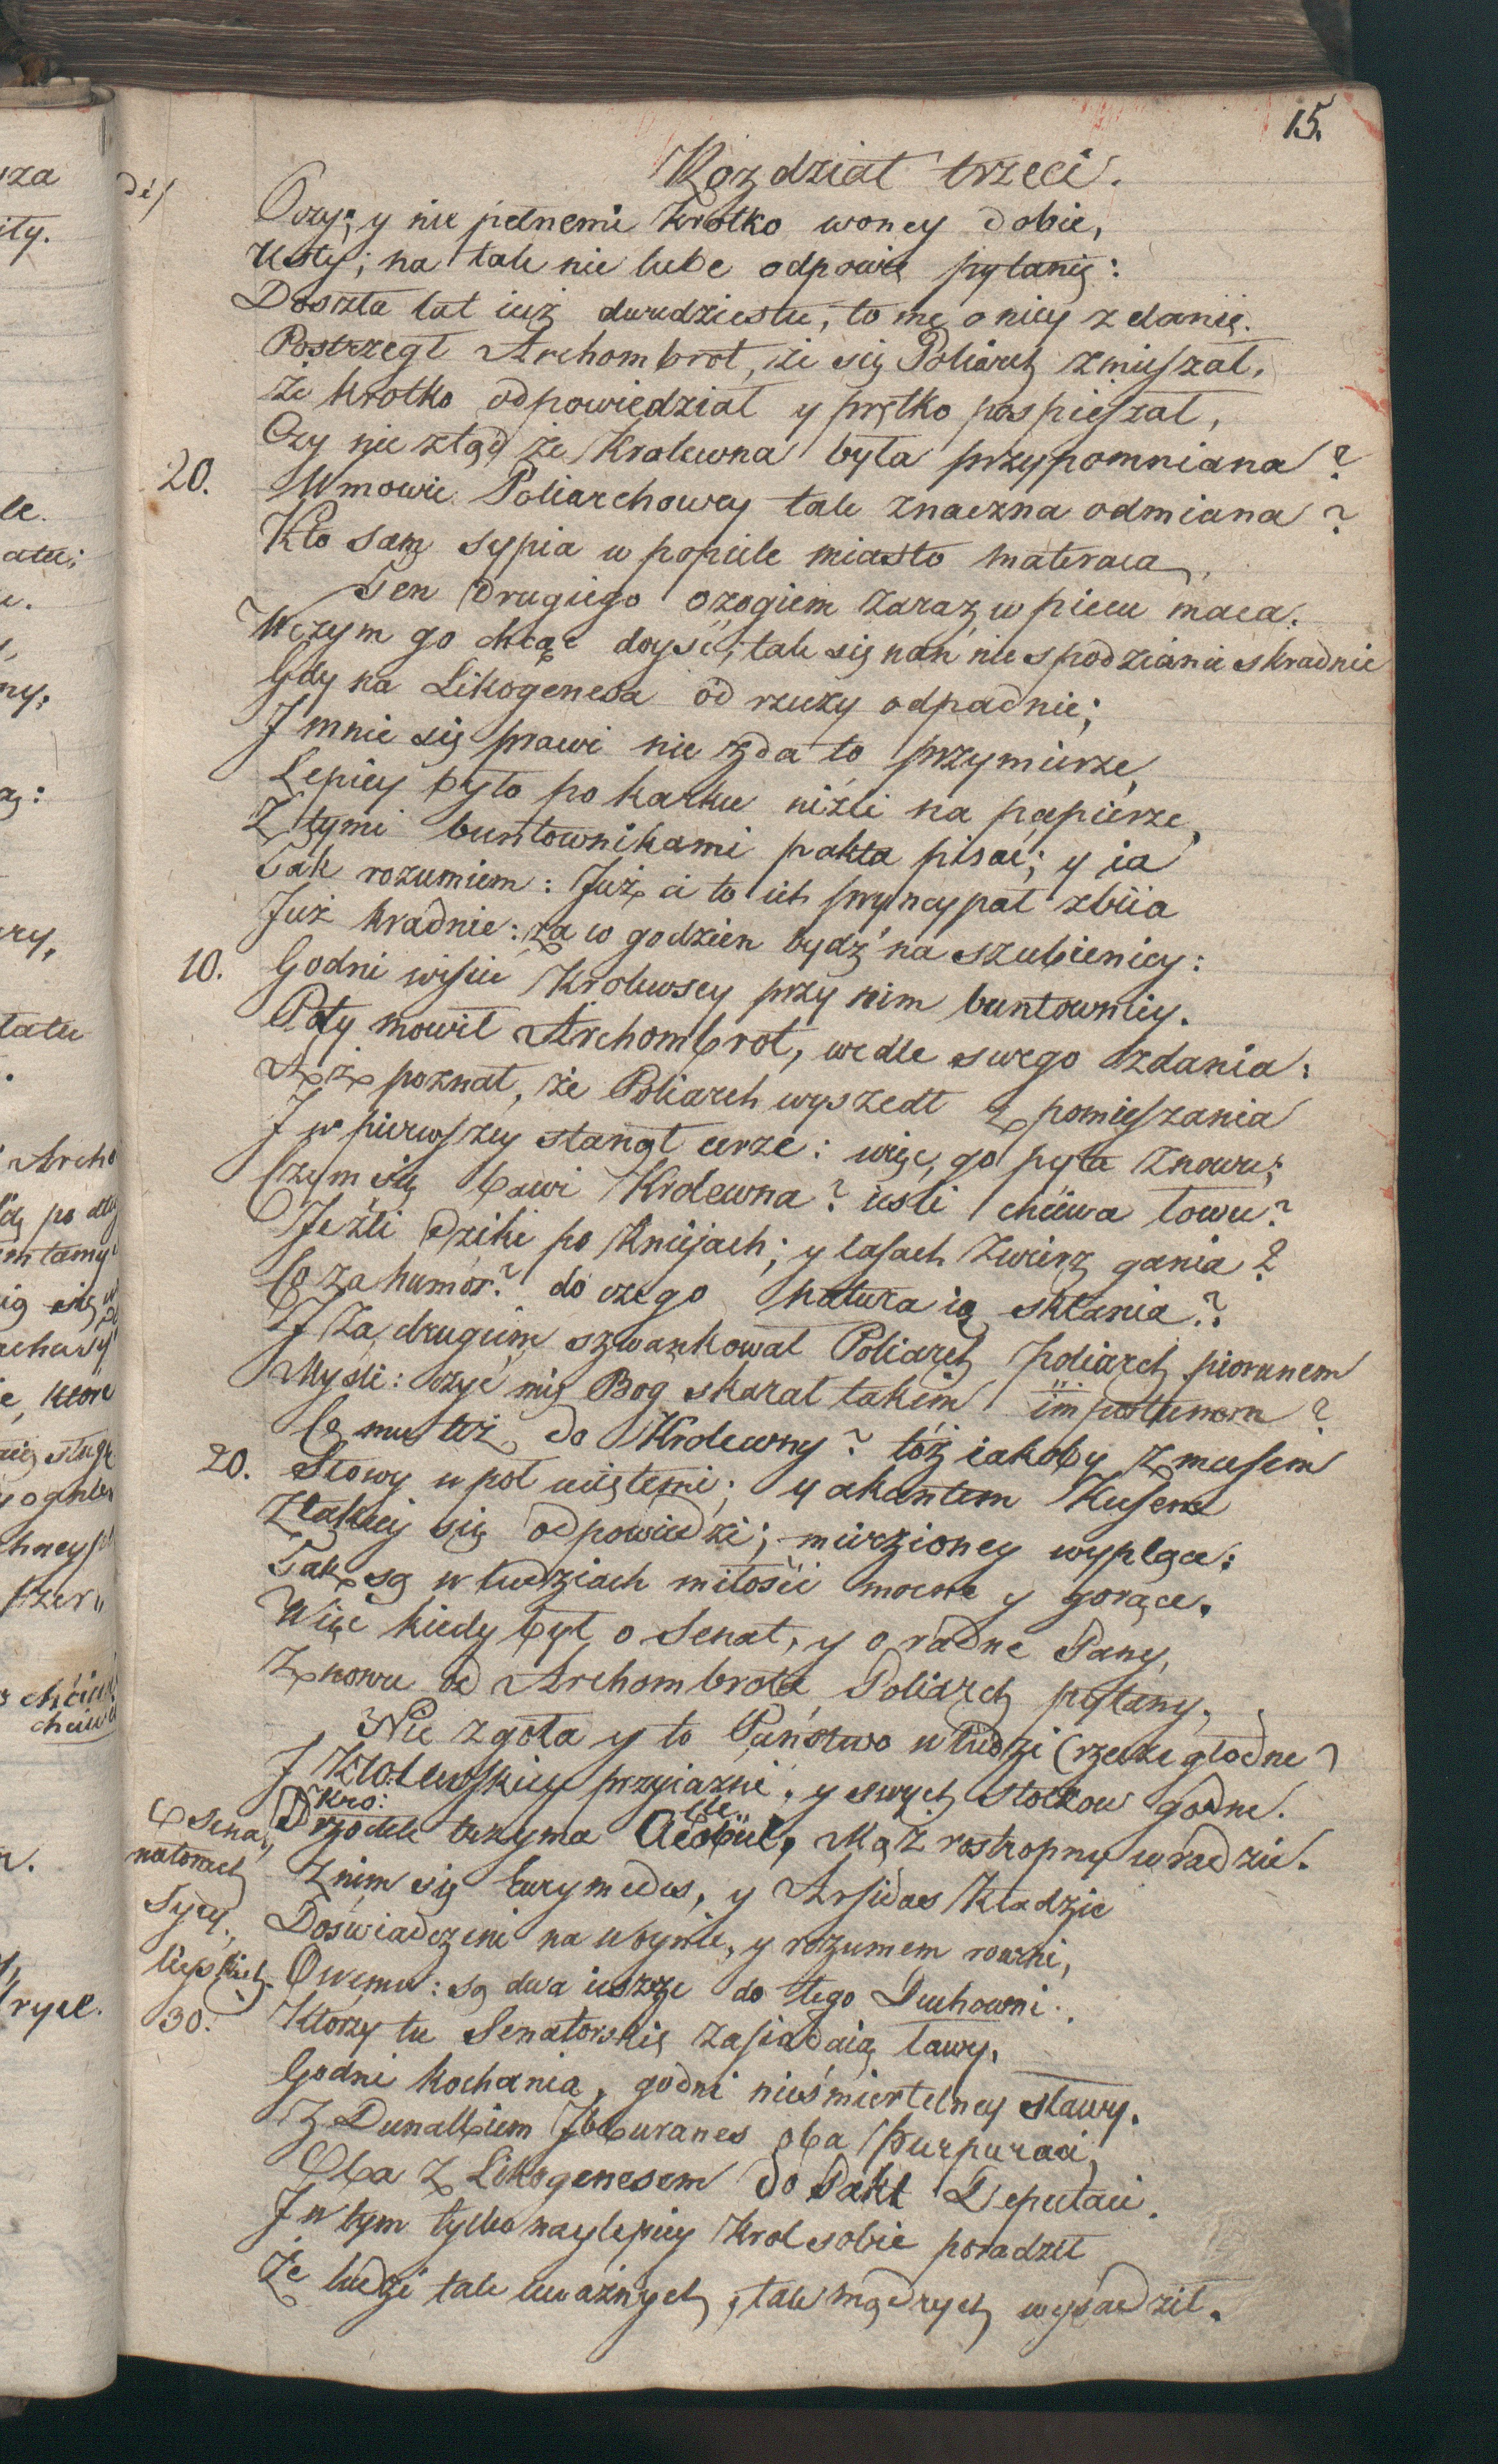 15.
Rozdział trzeci.
Oczy; y nie pełnemi krotko woney dobie,
Usty; na tak nie lube odpowie pytanię:
Doszła lat iuż dwudziestu; to mę o niey zdanię.
Postrzegł Archombrot, że się Poliarch zmieszał,
Że krotko odpowiedział y prętko pospieszał,
Czy nie ztąd że Krolewna była przypomniana?
20. W mowie Poliarchowey tak znaczna odmiana?
Kto sam sypia w popiele miasto materaca,
Ten drugiego ożogiem zaraz w piecu maca.
W czym go chcąc doyść; tak się nań niespodzianie skradnie
Gdy na Likogenesa od rzeczy odpadnie;
J mnie się prawi nie zda to przymierze,
Lepiey było po karku niźli na papierze,
Z tymi buntownikami pakta pisać; y ia
Tak rozumiem: Już ci to ich pryncypał zbiia
Już kradnie: za w godzien bydź na szubienicy:
10. Godni wisieć Krolewscy przy nim buntownicy.
Poty mowił Archombrot, wedle swego zdania:
Aż poznał, że Poliarch wyszedł z pomięszania
J w pierwszey stanął cerze: więc go pyta znowu;
Czym się bawi Krolewna? iesli chciwa łowu?
Jeżli dziki po kniejach; y lasach zwierz gania?
Co za humor? do czego natura ią skłania?
J za drugim szwankował Poliarch Poliarch piorunem
Myśli: czyć mię Bog skarał takim importunem?
Co mu też do Krolewny? toż iakoby z musem
20. Słowy w poł uciętemi; y akantem kusem
Z takiey się odpowiedzi; mierzioney wyplące:
Tak są w ludziach miłości mocne y gorące.
Więc kiedy był o Senat, y o radne Pany,
Znowu od Archombrota Poliarch pytany;
Nie zgoła y to Państwo w ludzi (rzecze głodne)
J Krolewskiey przyiaźni, y swych stołkow godne.
Kro:
O Sena- natorach Sycy- liyskich. Przodek trzyma Cleobul, Mąż rostropny w radzie.
Z nim się Eurymedes, y Arsidas kładzie
Doświadczeni na woynie, y rozumem rowni,
Owemu: są dwa ieszcze do tego Duchowni.
30. Ktorzy tu Senatorskię zasiadaią ławy,
Godni kochania, godni nieśmiertelney sławy.
Z Dunalbiem Jbburanes oba Purpuraci,
Oba z Likogenesem do Pakt Deputaci.
J w tym tylko naylepiey Krol sobie poradził
Że ludzi tak uważnych, tak mądrych wysadził.